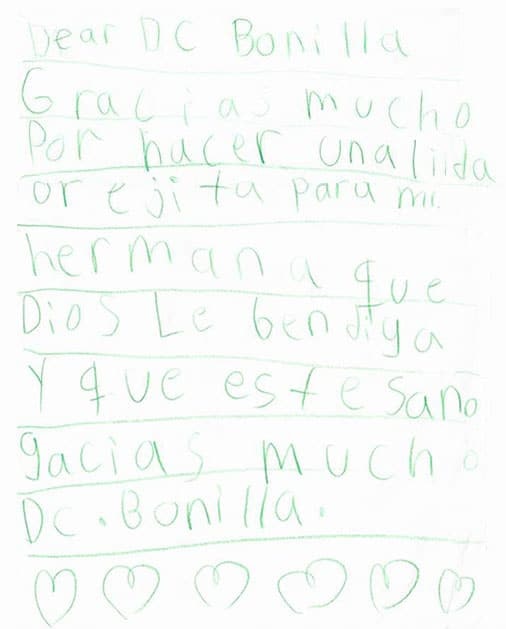 Dear DC Bonilla
Gracias mucho
Por hacer una liida
orejita para mi
hermana que
Dios Le bendiga
Y que este sano
gacias mucho
Dc. Bonilla.